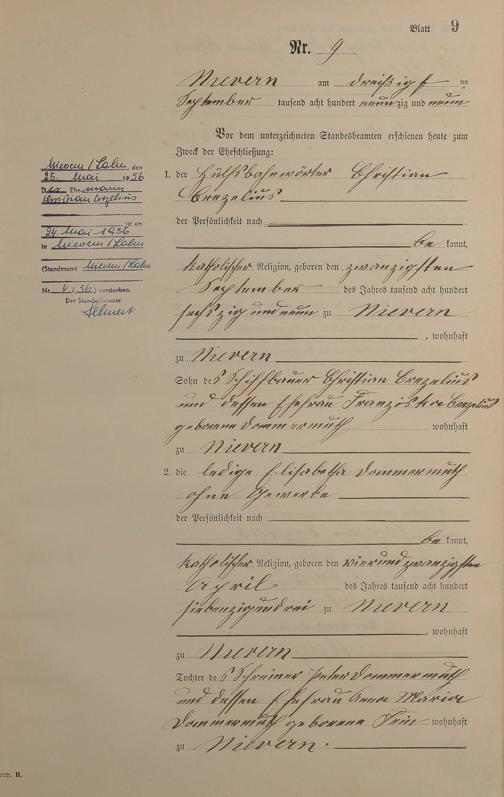 Blatt 9
Nr. 9
Nievern am dreißigsten
September tausend acht hundert neunzig und neun
Vor dem unterzeichneten Standesbeamten erschienen heute zum
Zweck der Eheschließung:
1. der Hülfsbahnwärter Christian
Crezelius
der Persönlichkeit nach
be kannt,
katholischer Religion, geboren den zwanzigsten
September des Jahres tausend acht hundert
sechszig und neun zu Nievern
, wohnhaft
zu Nievern
Sohn des Schiffbauer Christian Crezelius
und dessen Ehefrau Franziska Crezelius
geborene Dommermuth wohnhaft
zu Nievern
2. die ledige Elisabetha Dommermuth
ohne Gewerbe
der Persönlichkeit nach
be kannt,
katholischer Religion, geboren den vierundzwanzigsten
April des Jahres tausend acht hundert
siebenzigunddrei zu Nievern
, wohnhaft
zu Nievern
Tochter des Schreiner Peter Dommermuth
und dessen Ehefrau Anna Maria
Dommermuth geborene Fein wohnhaft
zu Nievern.
Nievern/Lahn den
25. Mai 1956
Der Ehemann
Christian Crezelius
ist am
24. Mai 1956
in Nievern/Lahn
(Standesamt Nievern/Lahn
Nr. 4/56) verstorben.
Der Standesbeamte
B.